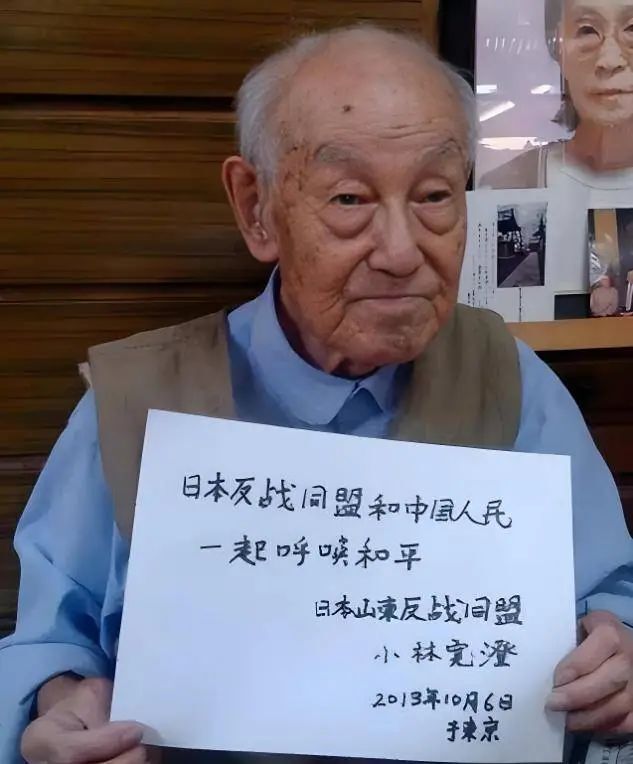 日本反战同盟和中国人民
一起呼唤和平
日本山東反战同盟
小林宽澄
2013年10月6日
于東京